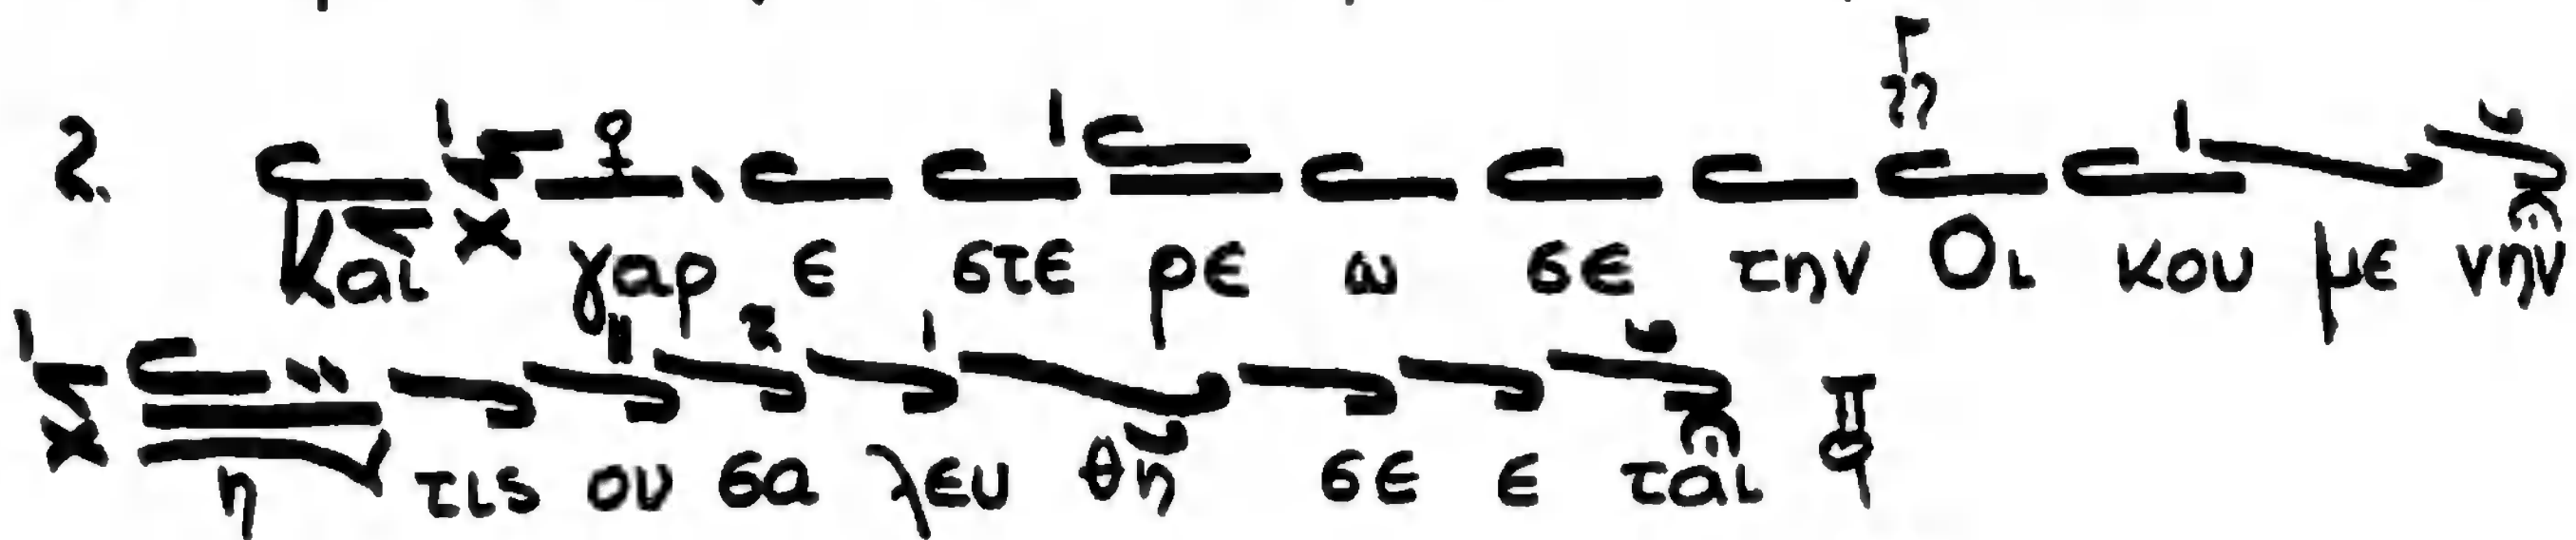 2. Και γαρ ε στε ρε ω σε την Οι κου με νην
η τις ου σα λευ θη σε ε ται